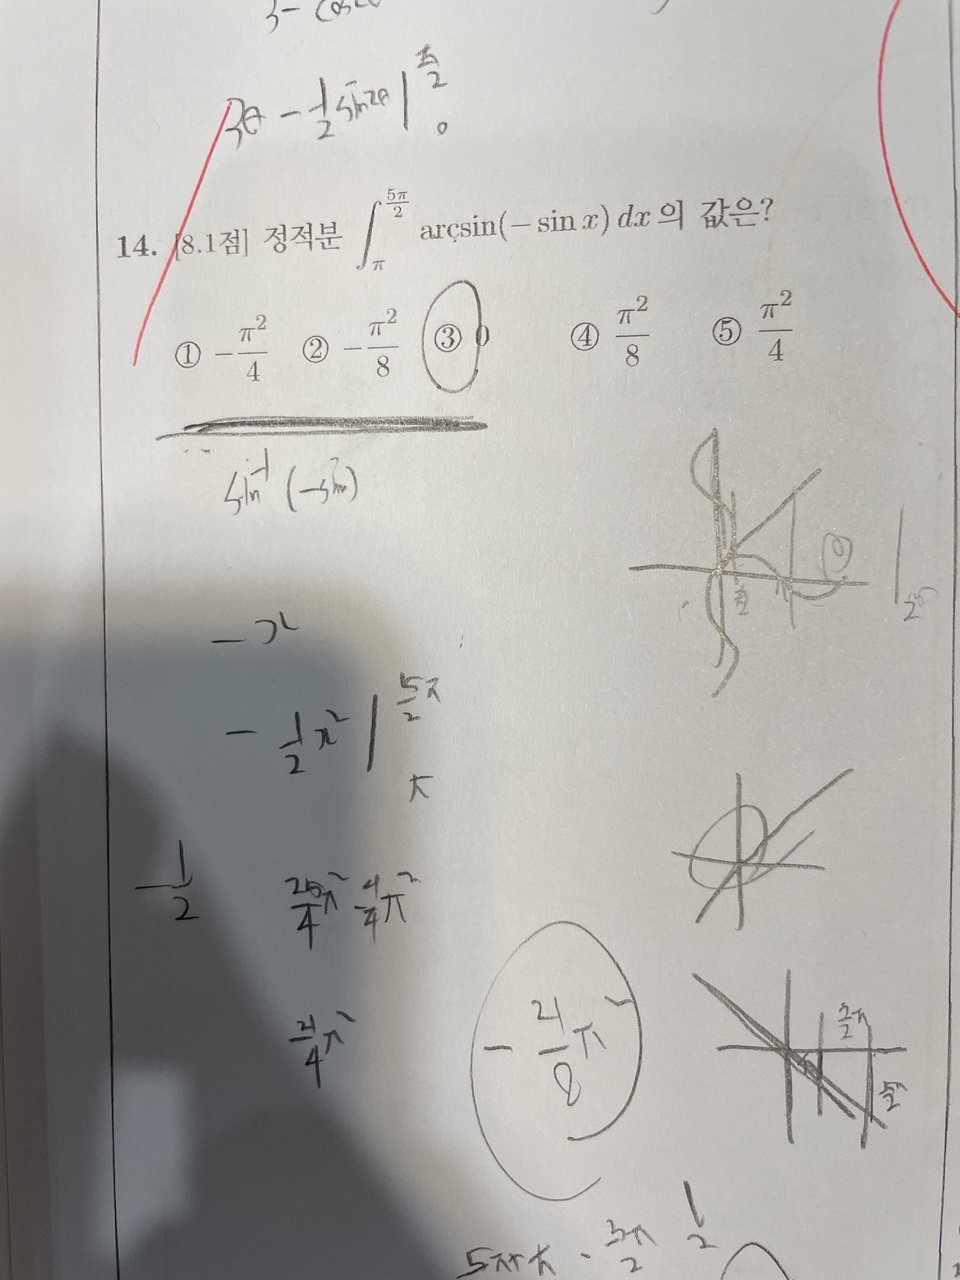 3- cos2θ
3θ - 1/2 sin2θ | π/2 0
14. [8.1점] 정적분 ∫_π^{5π/2} arcsin(− sin x) dx 의 값은?
① −π²/4 ② −π²/8 ③ 0 ④ π²/8 ⑤ π²/4
sin⁻¹ (−sin)
−x
− 1/2 x² | 5/2 π π
−1/2 25/4 π² − 4/4 π²
21/4 π²
− 21/8 π²
3/2 π
1/2